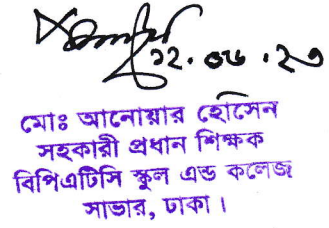 ১২.০৬.২৩
মোঃ আনোয়ার হোসেন
সহকারী প্রধান শিক্ষক
বিপিএটিসি স্কুল এন্ড কলেজ
সাভার, ঢাকা।